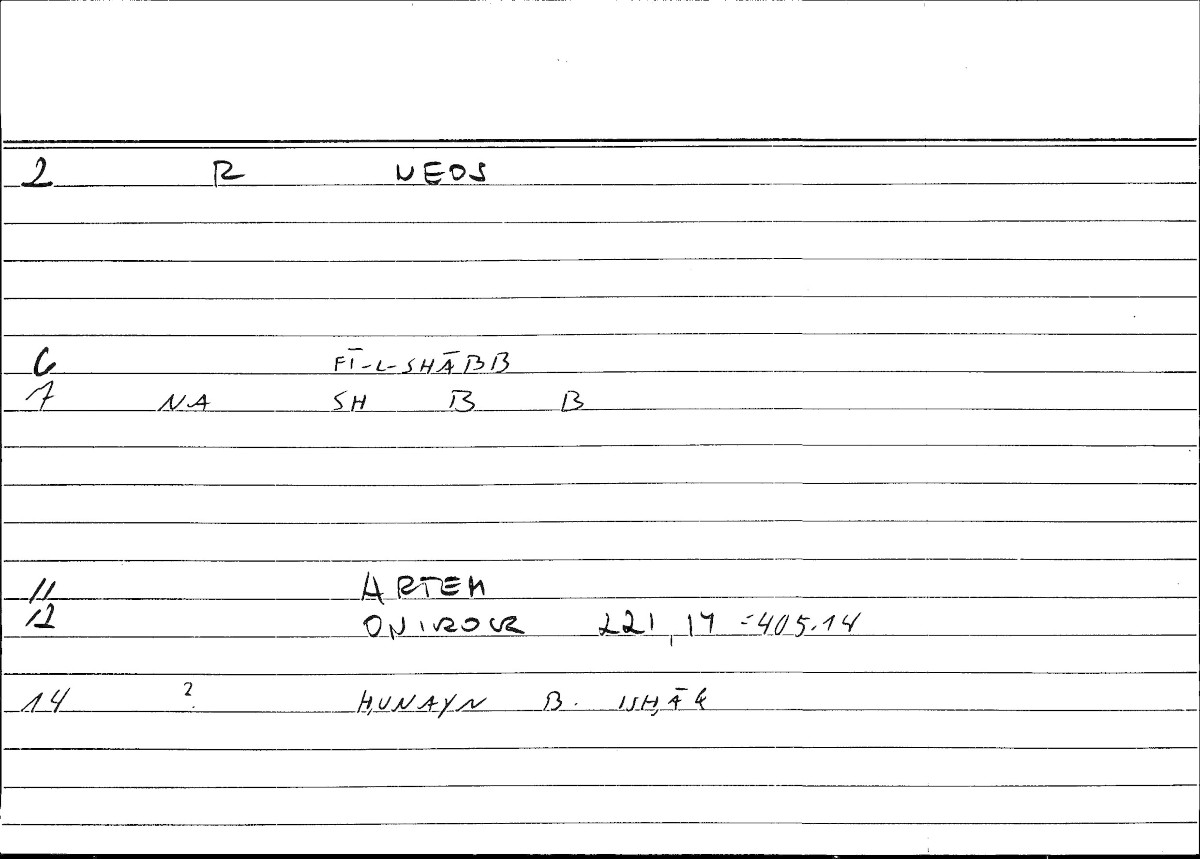 2 R NEOS
6 FĪ-L-SHĀBB
7 NA SH B B
11 ARTEM
12 ONIROCR 221, 17 =405.14
14 ? ḤUNAYN B. ISḤĀQ